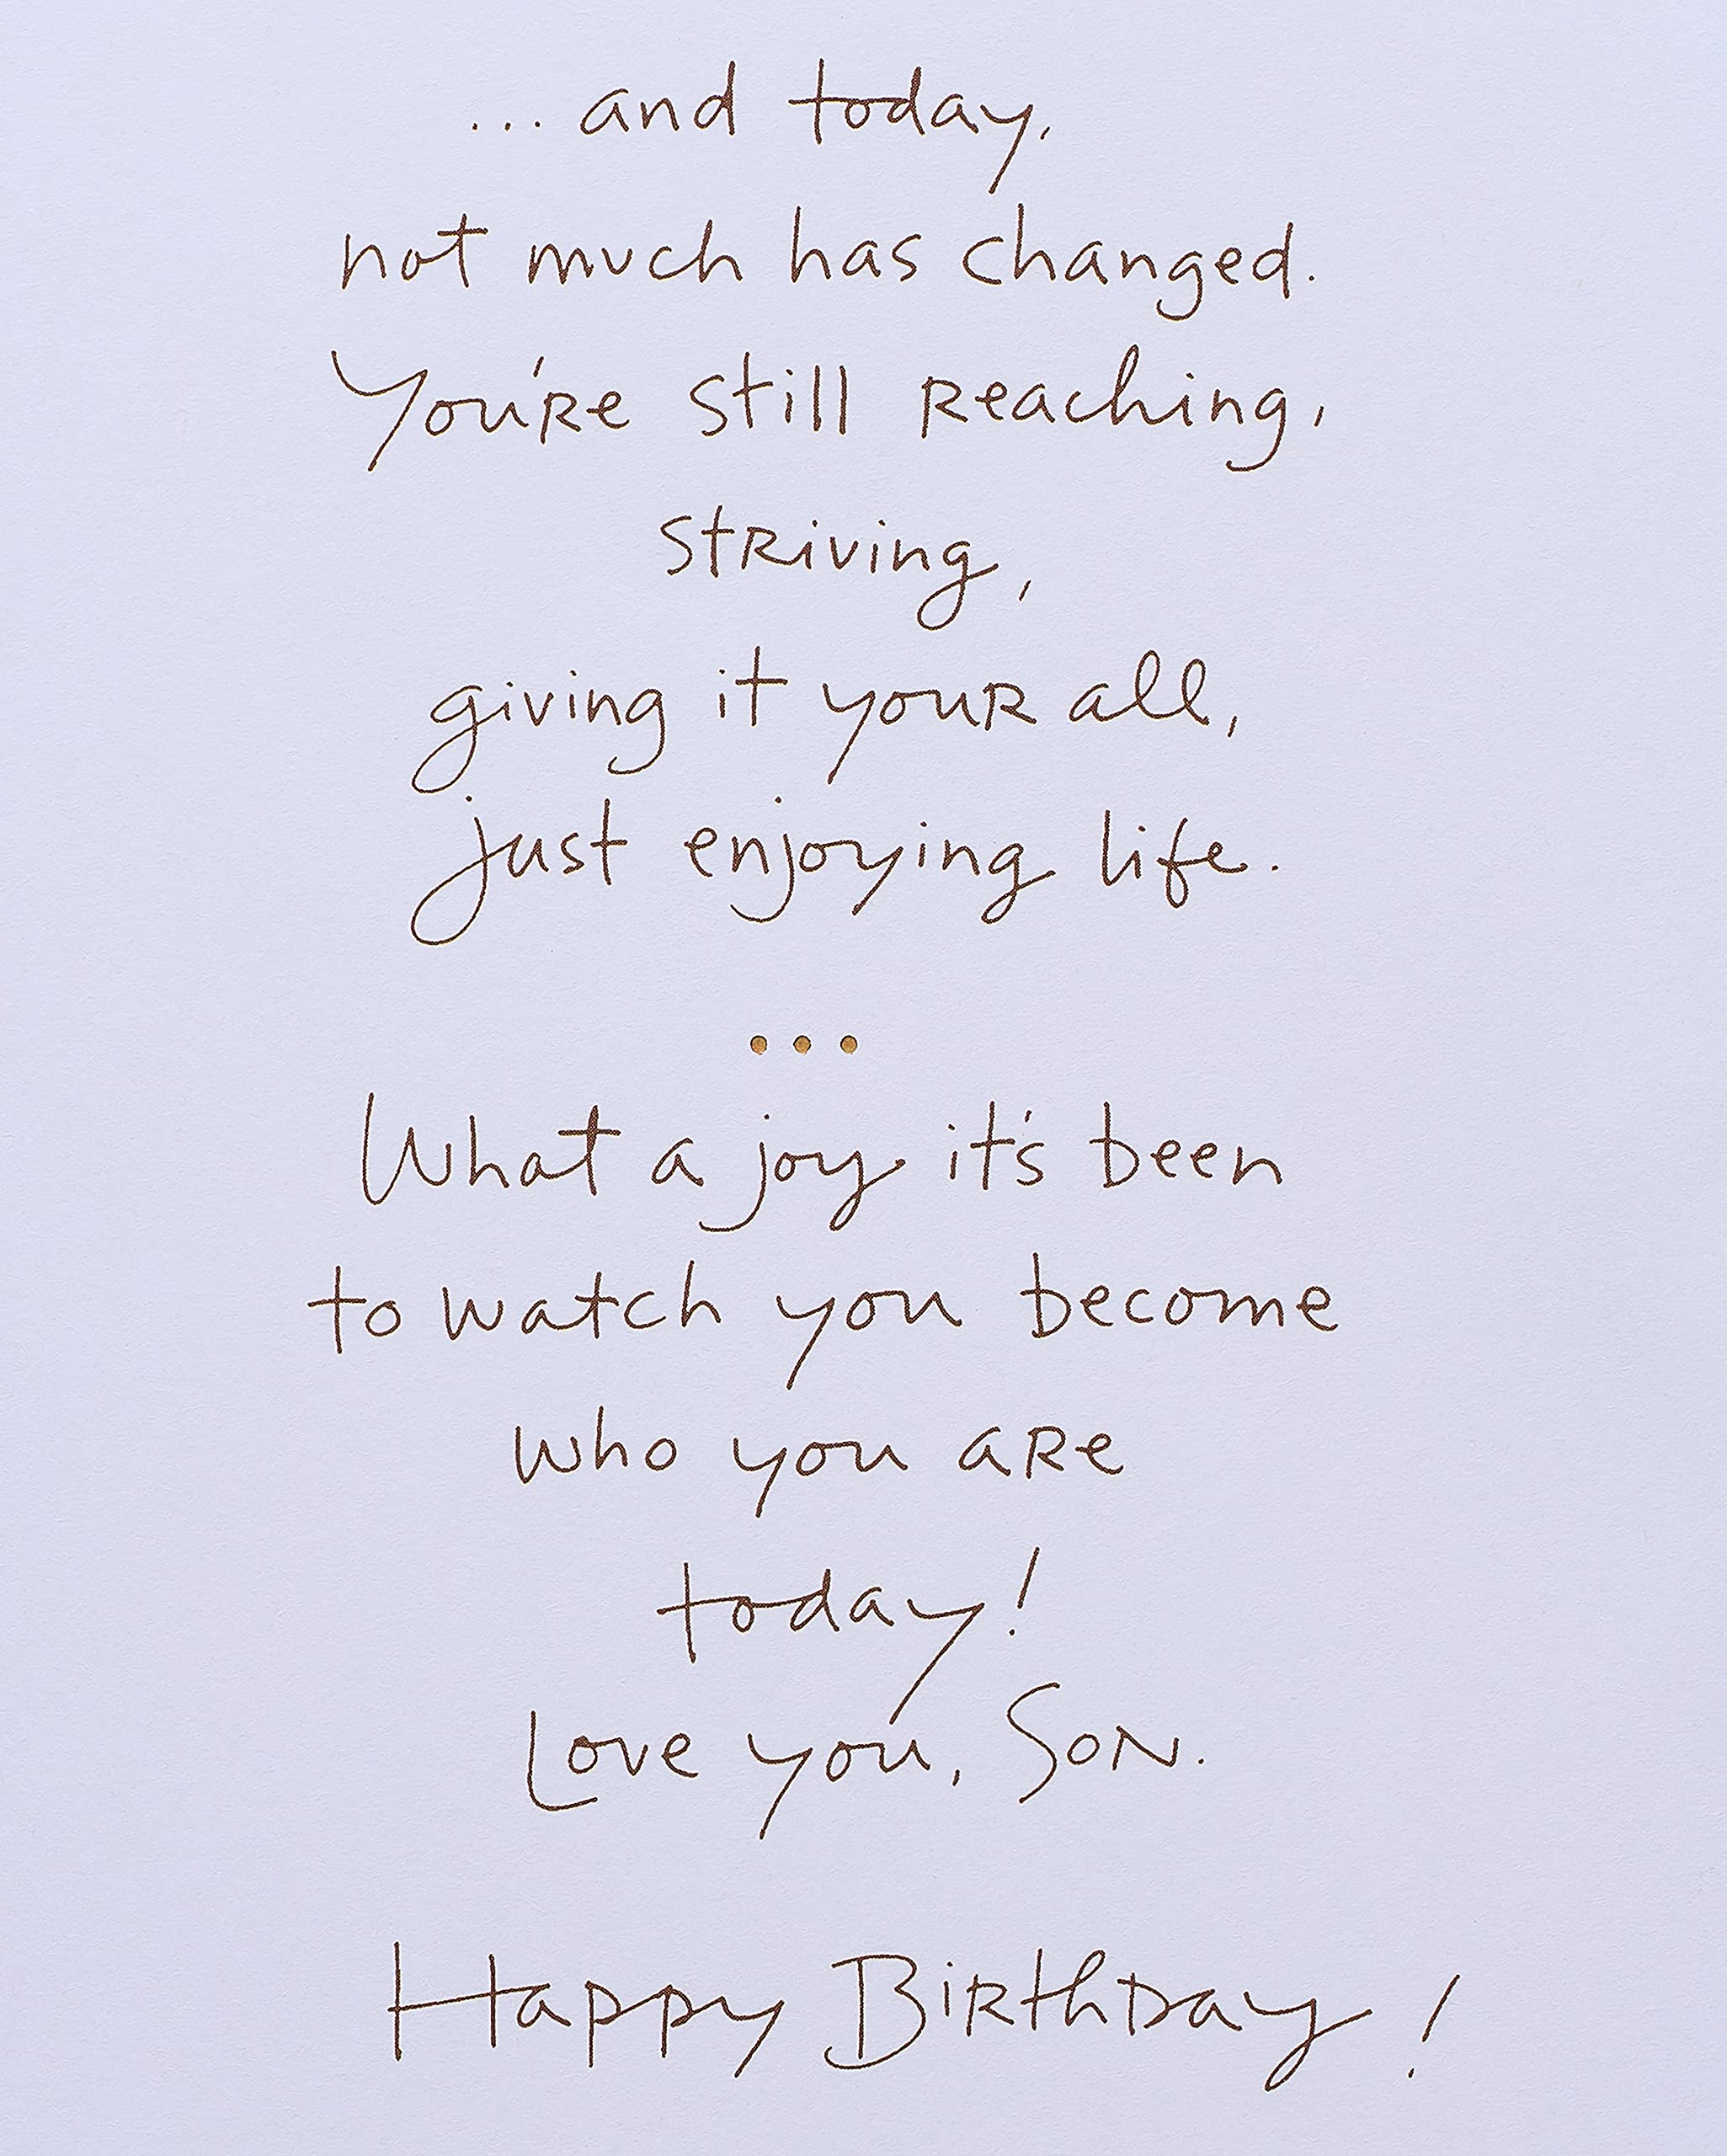 ... and today,
not much has changed.
You're still reaching,
striving,
giving it your all,
just enjoying life.
...
What a joy it's been
to watch you become
who you are
today!
Love you, Son.
Happy Birthday!